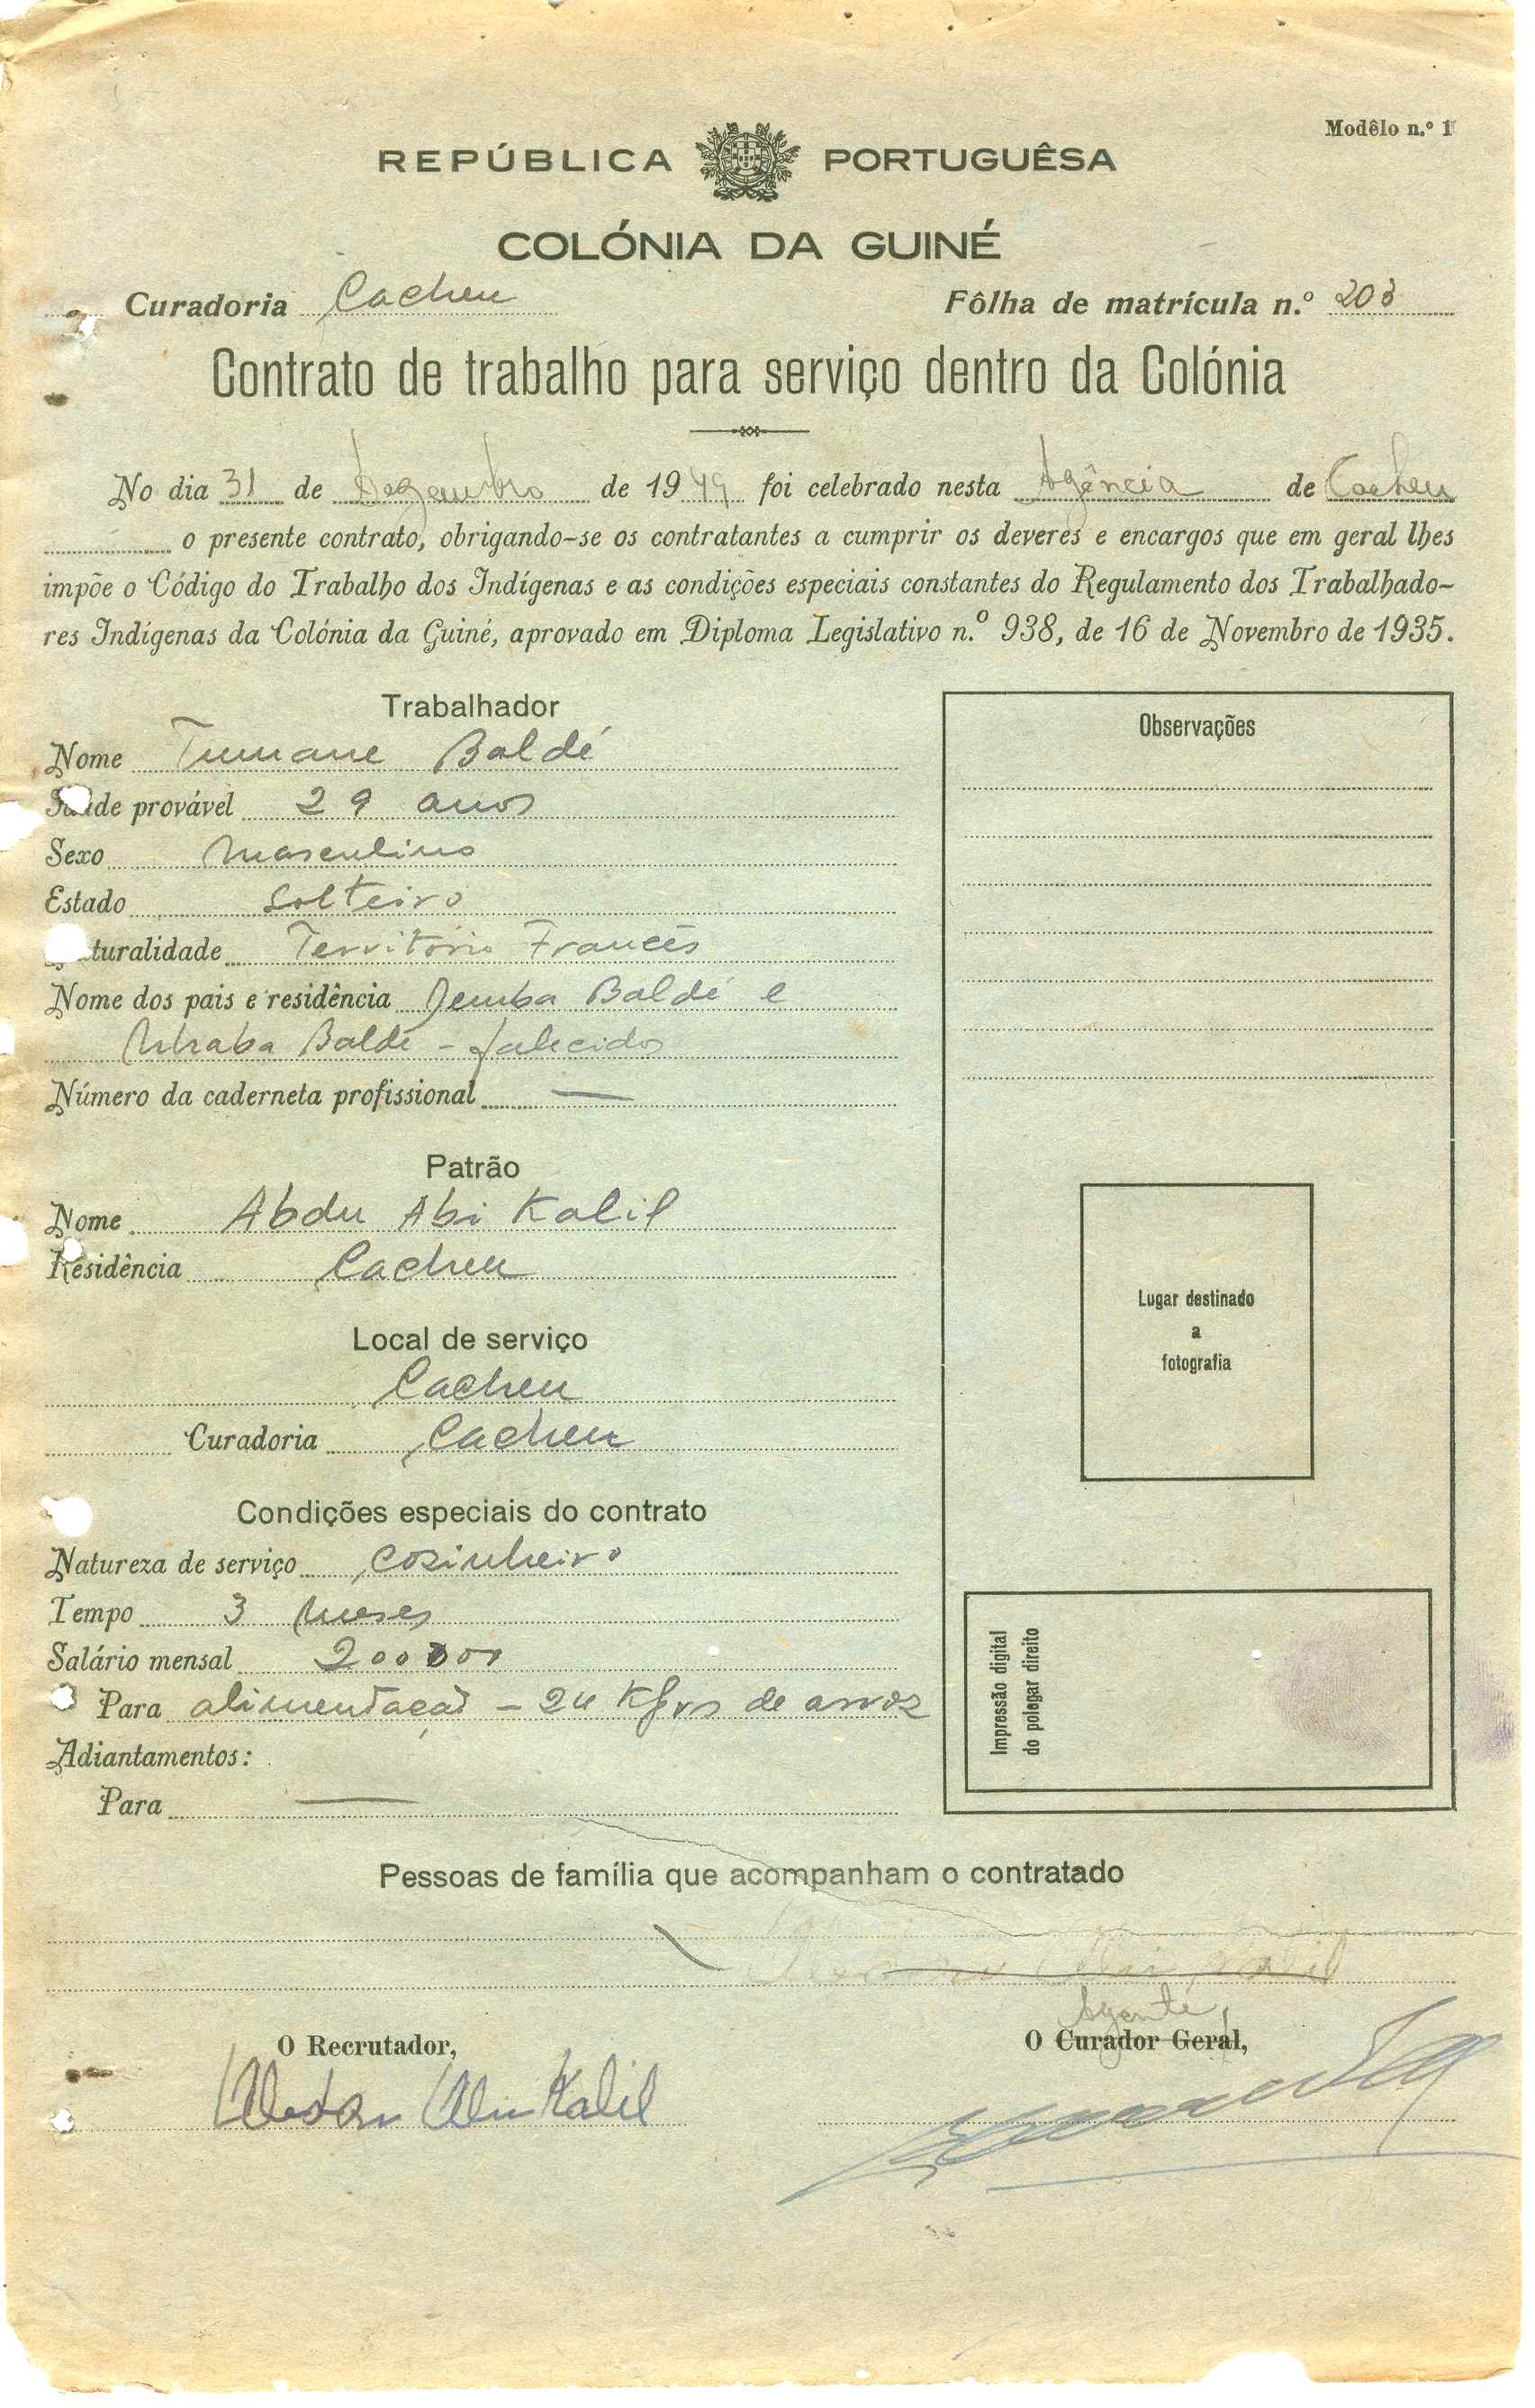 Modêlo n.º 1
REPÚBLICA PORTUGUÊSA
COLÓNIA DA GUINÉ
Curadoria Cacheu Fôlha de matrícula n.º 203
Contrato de trabalho para serviço dentro da Colónia
No dia 31 de Dezembro de 1949 foi celebrado nesta Agência de Cacheu
o presente contrato, obrigando-se os contratantes a cumprir os deveres e encargos que em geral lhes
impõe o Código do Trabalho dos Indígenas e as condições especiais constantes do Regulamento dos Trabalhado-
res Indígenas da Colónia da Guiné, aprovado em Diploma Legislativo n.º 938, de 16 de Novembro de 1935.
Trabalhador
Nome Tumane Baldé
Idade provável 29 anos
Sexo Masculino
Estado Solteiro
Naturalidade Território Francês
Nome dos pais e residência Demba Baldé e
Baldé - falecidos
Número da caderneta profissional —
Patrão
Nome Abdu Abi Kalil
Residência Cacheu
Local de serviço
Cacheu
Curadoria Cacheu
Condições especiais do contrato
Natureza de serviço Cozinheiro
Tempo 3 meses
Salário mensal 200$00
Para alimentação - 24 Kgrs de arroz
Adiantamentos:
Para —
Observações
Lugar destinado
a
fotografia
Impressão digital
do polegar direito
Pessoas de família que acompanham o contratado
Agente,
O Recrutador, O Curador Geral,
Kalil